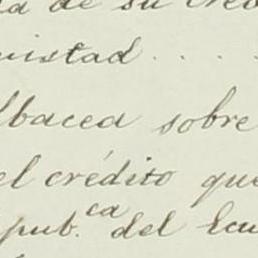 de su
istad . . . .
lbacea sobre
el crédito que
pub.ca del Ecu